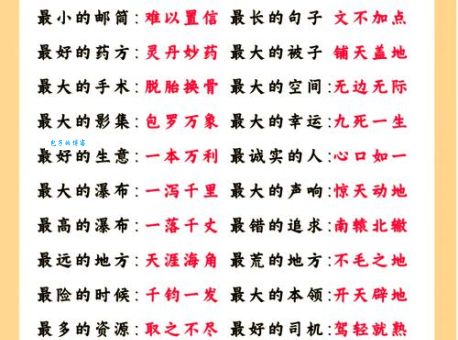 最小的邮筒：难以置信 最长的句子 文不加点
最好的药方：灵丹妙药 最大的被子 铺天盖地
最大的手术：脱胎换骨 最大的空间：无边无际
最大的影集：包罗万象 最大的幸运：九死一生
包子的博客
最好的生意：一本万利 最诚实的人：心口如一
最大的瀑布：一泻千里 最大的声响：惊天动地
最高的瀑布：一落千丈 最错的追求：南辕北辙
最远的地方：天涯海角 最荒的地方：不毛之地
最险的时候：千钧一发 最大的本领：开天辟地
最多的资源：取之不尽 最好的司机：驾轻就熟